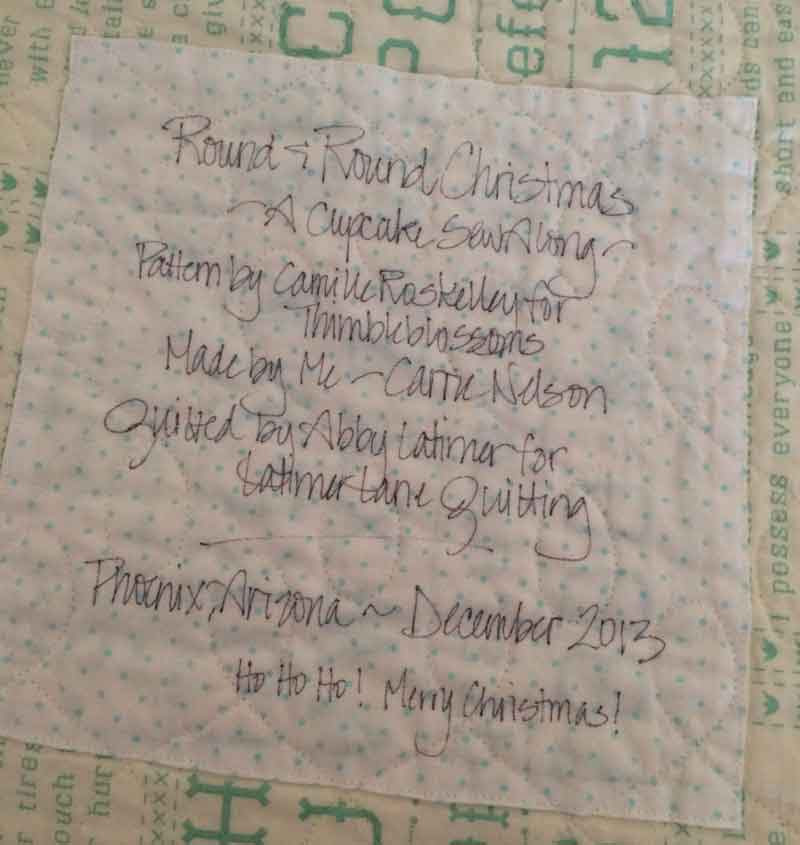 Round & Round Christmas
~A Cupcake Sew Along~
Pattern by Camille Roskelley for
Thimbleblossoms
Made by Me ~ Carrie Nelson
Quilted by Abby Latimer for
Latimer Lane Quilting
Phoenix, Arizona ~ December 2013
Ho Ho Ho! Merry Christmas!
never
with
short and eas
I possess everyone
r tires
ouch
hur
12
H